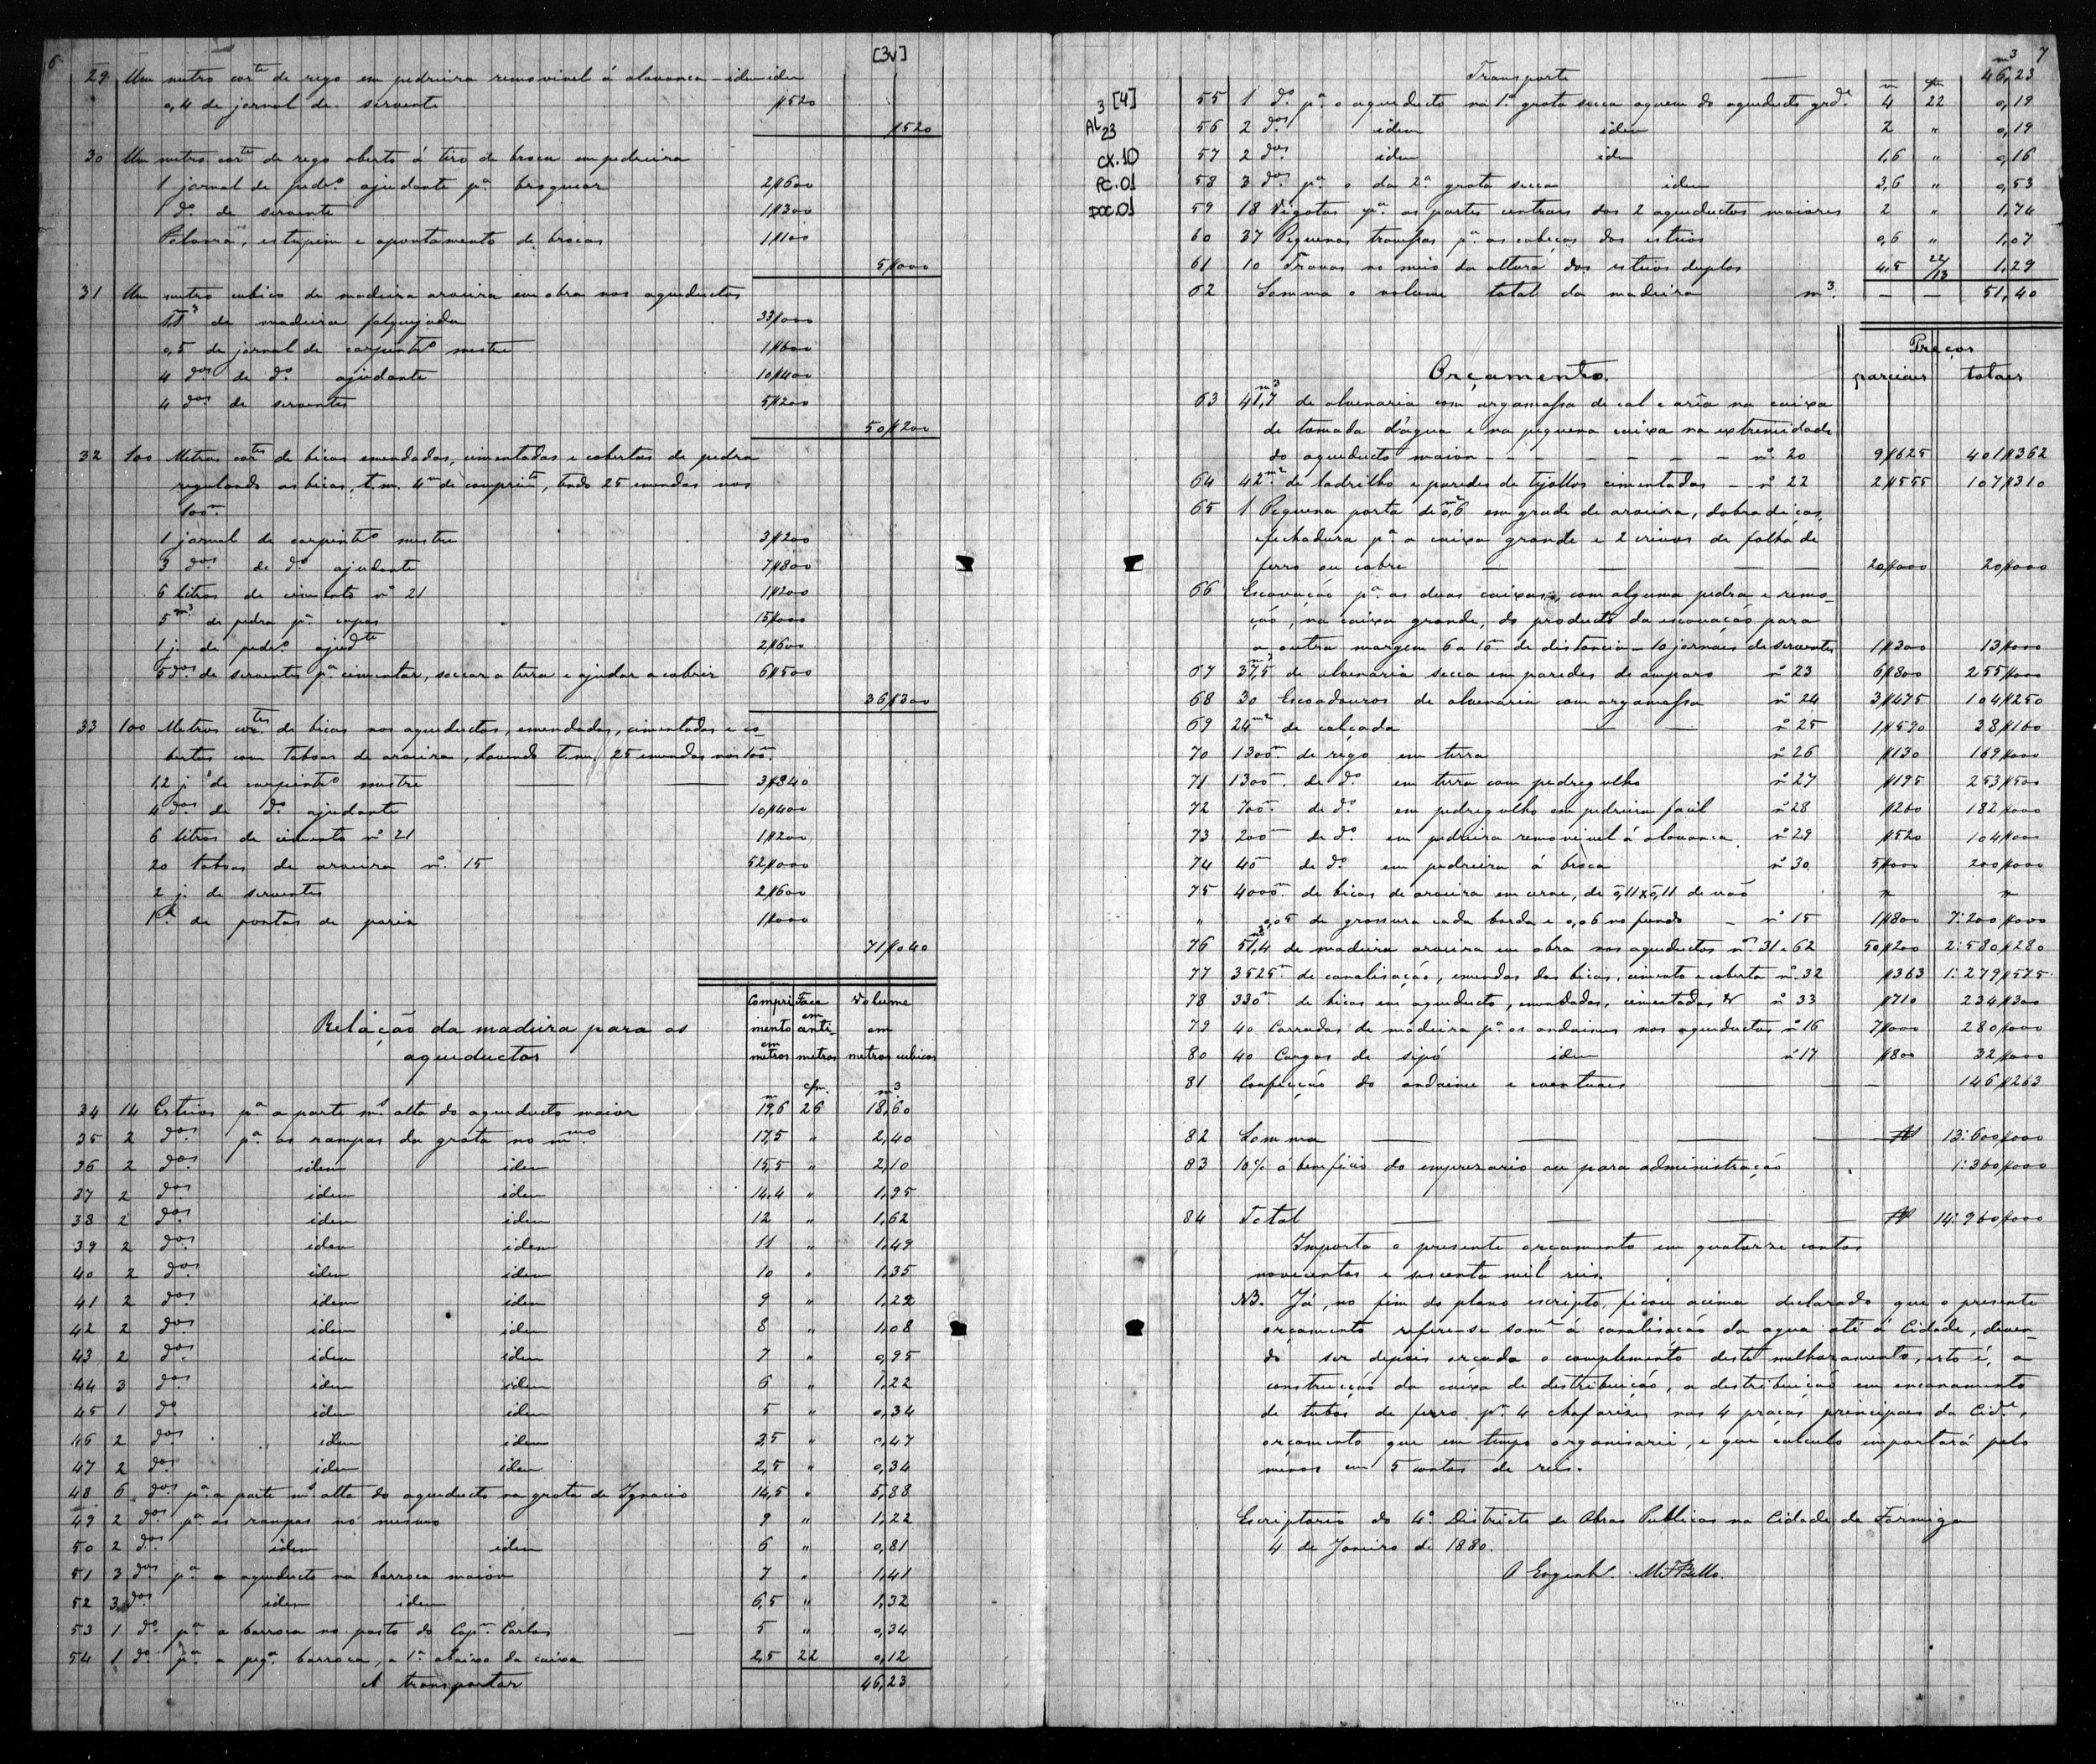 6
[3v]
29 Um metro corte de rego em pedreira removivel á alavanca – idem idem
0,4 de jornal de servente $520
$520
30 Um metro corte de rego aberto á tiro de broca em pedreira
1 jornal de pedro ajudante pa broquear 2$600
1 do de servente 1$300
Polvora, estupim e apontamento de brocas 1$100
5$000
31 Um metro cubico de madeira aroeira em obra nos aqueductos
1,1 m3 de madeira falquejada 33$000
0,5 de jornal de carpintro mestre 1$600
4 dos de do ajudante 10$400
4 dos de serventes 5$200
50$200
32 100 Metros cortes de bicas emendadas, cimentadas e cobertas de pedra
regulando as bicas, t.m. 4m de comprimto, tendo 25 emendas nos
100m
1 jornal de carpintro mestre 3$200
3 dos de do ajudante 7$800
6 litros de cimento no 21 1$200
5 m3 de pedra pa capas 15$000
1 j. de pedro ajudte 2$600
5 dos de serventes pa cimentar, soccar a terra e ajudar a cobrir 6$500
36$300
33 100 Metros cortes de bicas nos aqueductos, emendadas, cimentadas e co-
bertas com taboas de aroeira, havendo t.m. 25 emendas nos 100m.
1,2 j. de carpintro mestre 3$840
4 dos de do ajudante 10$400
6 litros de cimento no 21 1$200
20 taboas de aroeira no. 15 52$000
2 j. de serventes 2$600
1 de pontas de pariz 1$000
71$040
Relação da madeira para os
aqueductos
Comprimento em metros
Face em centimetros
Volume em metros cubicos
m c/m. m3
34 14 Esteios pa a parte ms alta do aqueducto maior 19,6 26 18,60
35 2 dos pa as rampas da grota no mmo 17,5 " 2,40
36 2 dos idem idem 15,5 " 2,10
37 2 dos idem idem 14,4 " 1,95
38 2 dos idem idem 12 " 1,62
39 2 dos idem idem 11 " 1,49
40 2 dos idem idem 10 " 1,35
41 2 dos idem idem 9 " 1,22
42 2 dos idem idem 8 " 1,08
43 2 dos idem idem 7 " 0,95
44 3 dos idem idem 6 " 1,22
45 1 do idem idem 5 " 0,34
46 2 dos idem idem 3,5 " 0,47
47 2 dos idem idem 2,5 " 0,34
48 6 dos pa a parte ms alta do aqueducto na grota de Ignacio 14,5 " 5,88
49 2 dos pa as rampas no mesmo 9 " 1,22
50 2 dos idem idem 6 " 0,81
51 3 dos pa o aqueducto na barroca maior 7 " 1,41
52 3 dos idem idem 6,5 " 1,32
53 1 do pa a barroca no pasto do Capm Carlos — 5 " 0,34
54 1 do pa a pega barroca, a 1a abaixo da caixa — 2,5 22 0,12
A transportar 46,23
7
3 [4]
AL 23
CX.10
PC.01
DOC.01
Transporte — m3 46,23
55 1 do pa o aqueducto na 1a grota secca aquem do aqueducto grde 4 22 0,19
56 2 dos idem idem 2 " 0,19
57 2 dos idem idem 1,6 " 0,16
58 3 dos pa o da 2a grota secca idem 3,6 " 0,53
59 18 Vigotas pa as partes centraes dos 2 aqueductos maiores 2 " 1,74
60 37 Pequenas travessas pa as cabeças dos esteios 0,6 " 1,07
61 10 Travas no meio da altura dos esteios duplos 4,5 22/13 1,29
62 Somma o volume total da madeira m3. — — 51,40
Orçamento.
Preços
parciaes totaes
63 41,7 m3 de alvenaria com argamassa de cal e arêa na caixa
de tomada d'agua e na pequena caixa na extremidade
do aqueducto maior – – – – – – no 20 9$625 401$362
64 42 m2 de ladrilho e paredes de tijollos cimentadas – – no 22 2$555 107$310
65 1 Pequena porta de 0,6 m2 em grade de aroeira, dobradeiças,
fechadura pa a caixa grande e 2 crivos de folha de
ferro ou cobre — — — — 20$000 20$000
66 Escavação pa as duas caixas, com alguma pedra e remo-
ção, na caixa grande, do producto da escavação para
a outra margem 6 a 10m de distancia – 10 jornaes de serventes 1$300 13$000
67 37,5 m3 de alvenaria secca em paredes de amparo no 23 6$800 255$000
68 30 Escoadouros de alvenaria com argamassa no 24 3$475 104$250
69 24 m2 de calçada — — no 25 1$590 38$160
70 1300m de rego em terra no 26 $130 169$000
71 1300m. de do em terra com pedregulho no 27 $195 253$500
72 700m. de do em pedregulho em pedreira facil no 28 $260 182$000
73 200m de do em pedreira removivel á alavanca. no 29 $520 104$000
74 40m de do em pedreira á broca no 30. 5$000 200$000
75 4000m de bicas de aroeira em cerne, de 0,11 x 0,11 de vão " "
" 0,05 de grossura cada borda e 0,06 no fundo – no 15 1$800 7:200$000
76 51,4 m3 de madeira aroeira em obra nos aqueductos nos 31 e 62 50$200 2:580$280
77 3525m de canalisação, emendas das bicas, cimento e coberta no 32 $363 1:279$575
78 330m de bicas em aqueducto, emendadas, cimentadas & no 33 $710 234$300
79 40 Carradas de madeira pa os andaimes nos aqueductos no 16 7$000 280$000
80 40 Cargas de sipó idem no 17 $800 32$000
81 Confecção do andaime e eventuaes — — 146$263
82 Somma — — — — $ 13:600$000
83 10% á beneficio do emprezario ou para administração 1:360$000
84 Total — — — — $ 14:960$000
Importa o presente orçamento em quatorze contos
novecentos e sessenta mil reis.
NB. Já, no fim do plano escripto, ficou acima declarado que o presente
orçamento refere-se somte á canalisação da agua até á Cidade, deven-
do ser depois orçada o complemento deste melhoramento, isto é, a
construcção da caixa de distribuição, a distribuição em encanamento
de tubos de ferro pa. 4 chafarizes nas 4 praças principaes da Cide,
orçamento que em tempo organisarei, e que calculo importará pelo
menos em 5 contos de reis.
Escriptorio do 4o. Districto de Obras Publicas na Cidade da Formiga
4 de Janeiro de 1880.
O Engenho.